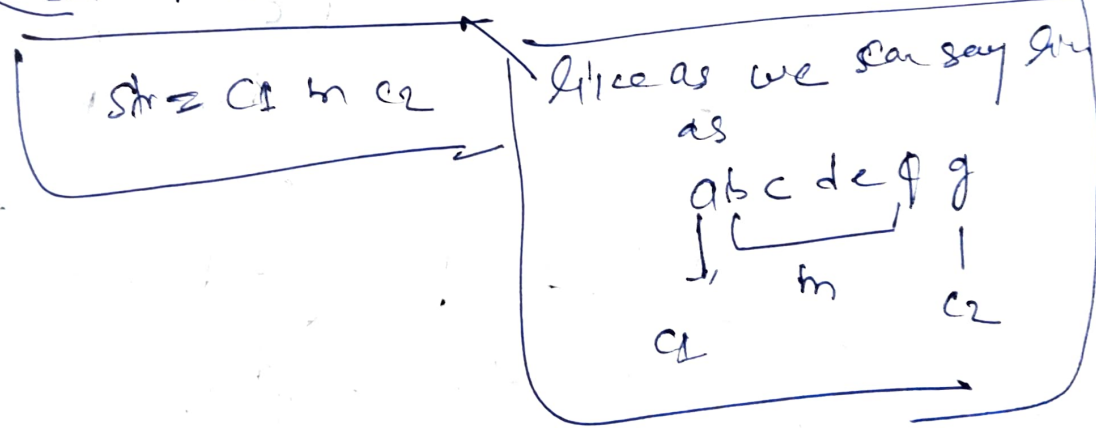 Str = C1 m C2
like as we can say
as
a b c d e f g
m
C2
C1